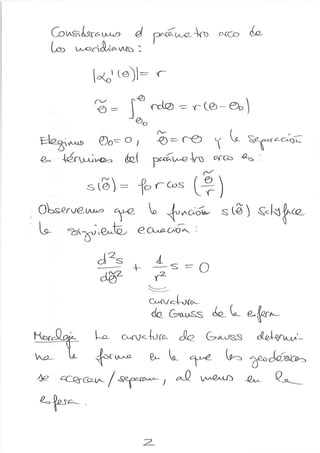 Consideramos el parámetro arco de
los meridianos :
|α₀'(θ)| = r
θ̃ = ∫_{θ₀}^{θ} r dθ = r(θ-θ₀)
Elegimos θ₀=0, θ̃=rθ y la separación
en términos del parámetro arco es:
s(θ̃) = φ₀ r cos (θ̃/r)
Observemos que la función s(θ̃) satisface
la siguiente ecuación :
d²s/dθ̃² + 1/r² s = 0
curvatura
de Gauss de la esfera
Moraleja La curvatura de Gauss determi-
na la forma en la que las geodésicas
se acercan / separan, al menos en la
esfera.
2